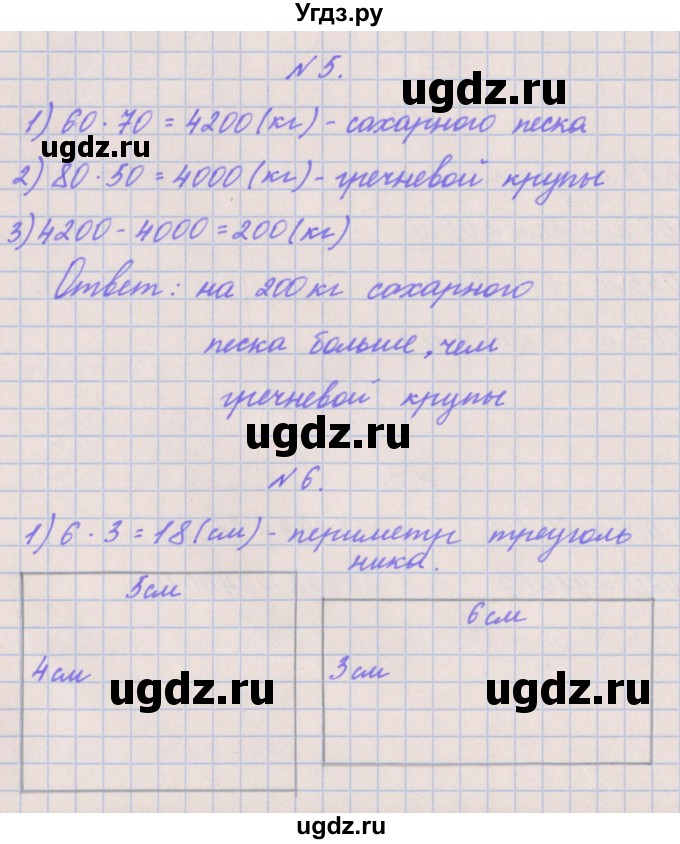 Угдз.ру
N 5.
ugdz.ru
1) 60 · 70 = 4200 (кг) - сахарного песка
ugdz.ru
2) 80 · 50 = 4000 (кг) - гречневой крупы
3) 4200 - 4000 = 200 (кг)
Ответ: на 200 кг сахарного
песка больше, чем
гречневой крупы
ugdz.ru
N 6.
1) 6 · 3 = 18 (см) - периметр треуголь
ника.
5 см
6 см
4 см
3 см
ugdz.ru
ugdz.ru
ugdz.ru